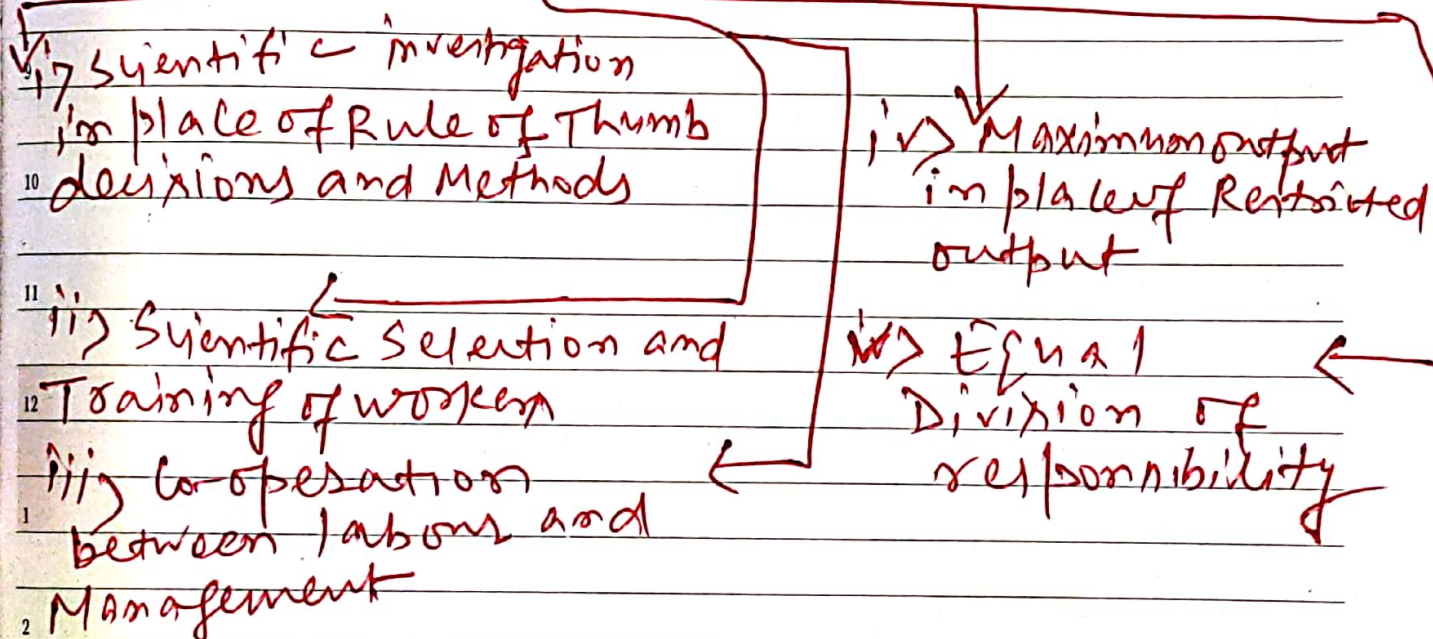 i> Scientific investigation
in place of Rule of Thumb
decisions and Methods
ii> Scientific Selection and
Training of workers
iii> Co-operation
between labour and
Management
iv> Maximum output
in place of Restricted
output
v> Equal
Division of
responsibility
9
10
11
12
1
2